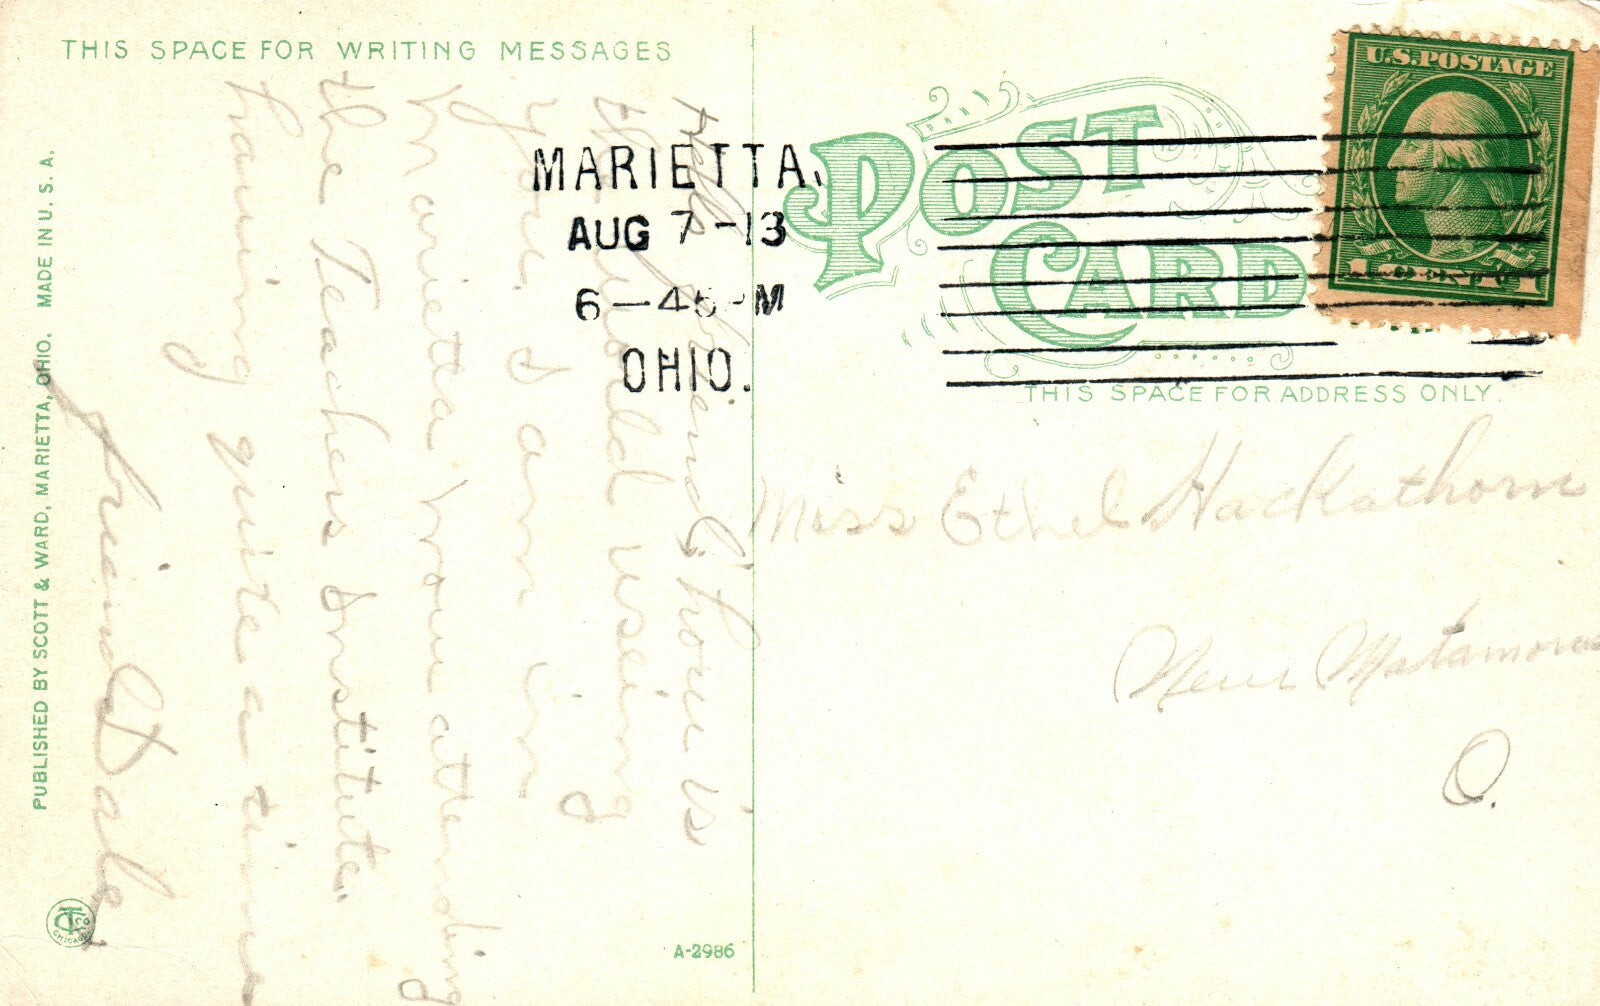 THIS SPACE FOR WRITING MESSAGES
Hello Friend: how is
the world useing
you. I am in
Marietta now attending
the Teachers Institute.
having quite a time
Friend Dale
PUBLISHED BY SCOTT & WARD, MARIETTA, OHIO. MADE IN U. S. A.
CT CO
CHICAGO
A-2986
MARIETTA,
AUG 7-13
6-45-M
OHIO.
POST
CARD
THIS SPACE FOR ADDRESS ONLY.
U.S. POSTAGE
1 CENT 1
Miss Ethel Hackathorn
New Matamoras
O.